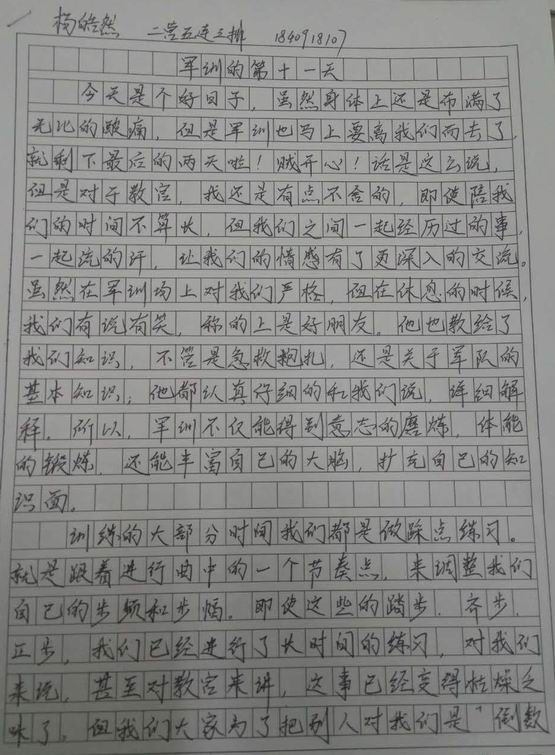 杨皓然 二营五连三排 1840918107
军训的第十一天
今天是个好日子，虽然身体上还是布满了
无比的酸痛，但是军训也马上要离我们而去了，
就剩下最后的两天啦！贼开心！话是这么说，
但是对于教官，我还是有点不舍的，即使陪我
们的时间不算长，但我们之间一起经历过的事，
一起流的汗，让我们的情感有了更深入的交流。
虽然在军训场上对我们严格，但在休息的时候，
我们有说有笑，称的上是好朋友。他也教给了
我们知识，不管是急救包扎，还是关于军队的
基本知识；他都认真仔细的和我们说，详细解
释。所以，军训不仅能得到意志的磨炼，体能
的锻炼，还能丰富自己的大脑，扩充自己的知
识面。
训练的大部分时间我们都是做踩点练习。
就是跟着进行曲中的一个节奏点，来调整我们
自己的步频和步幅。即使这些的踏步．齐步．
正步，我们已经进行了长时间的练习，对我们
来说，甚至对教官来讲，这事已经变得枯燥乏
味了，但我们大家为了把别人对我们是"倒数